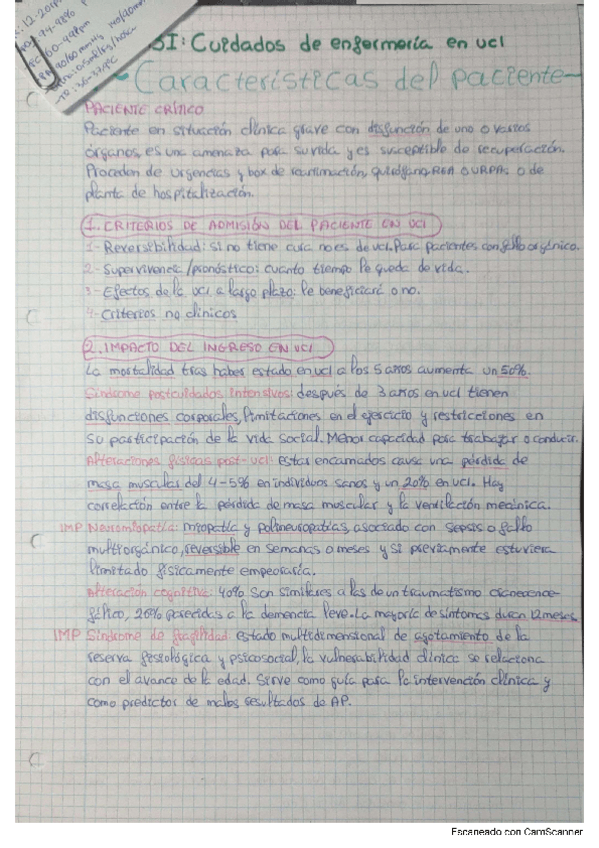 SI: Cuidados de enfermería en uci
Características del paciente
PACIENTE CRÍTICO
Paciente en situación clínica grave con disfunción de uno o varios
órganos, es una amenaza para su vida y es susceptible de recuperación.
Proceden de urgencias y box de reanimación, quirófano, REA o URPA, o de
planta de hospitalización.
1. CRITERIOS DE ADMISIÓN DEL PACIENTE EN UCI
1- Reversibilidad: si no tiene cura no es de uci. Para pacientes con fallo orgánico.
2- Supervivencia/pronóstico: cuanto tiempo le queda de vida.
3- Efectos de la uci a largo plazo: le beneficiará o no.
4- Criterios no clínicos
2. IMPACTO DEL INGRESO EN UCI
La mortalidad tras haber estado en uci a los 5 años aumenta un 50%.
Síndrome postcuidados intensivos: después de 3 años en uci tienen
disfunciones corporales, limitaciones en el ejercicio y restricciones en
su participación de la vida social. Menor capacidad para trabajar o conducir.
Alteraciones físicas post-uci: estar encamados causa una pérdida de
masa muscular del 4-5% en individuos sanos y un 20% en uci. Hay
correlación entre la pérdida de masa muscular y la ventilación mecánica.
IMP Neuromiopatía: miopatía y polineuropatías, asociado con sepsis o fallo
multiorgánico, reversible en semanas o meses y si previamente estuviera
limitado físicamente empeoraría.
Alteración cognitiva: 40% son similares a las de un traumatismo craneoence-
fálico, 26% parecidas a la demencia leve. La mayoría de síntomas duran 12 meses
IMP Síndrome de fragilidad: estado multidimensional de agotamiento de la
reserva fisiológica y psicosocial, la vulnerabilidad clínica se relaciona
con el avance de la edad. Sirve como guía para la intervención clínica y
como predictor de malos resultados de AP.
Escaneado con CamScanner